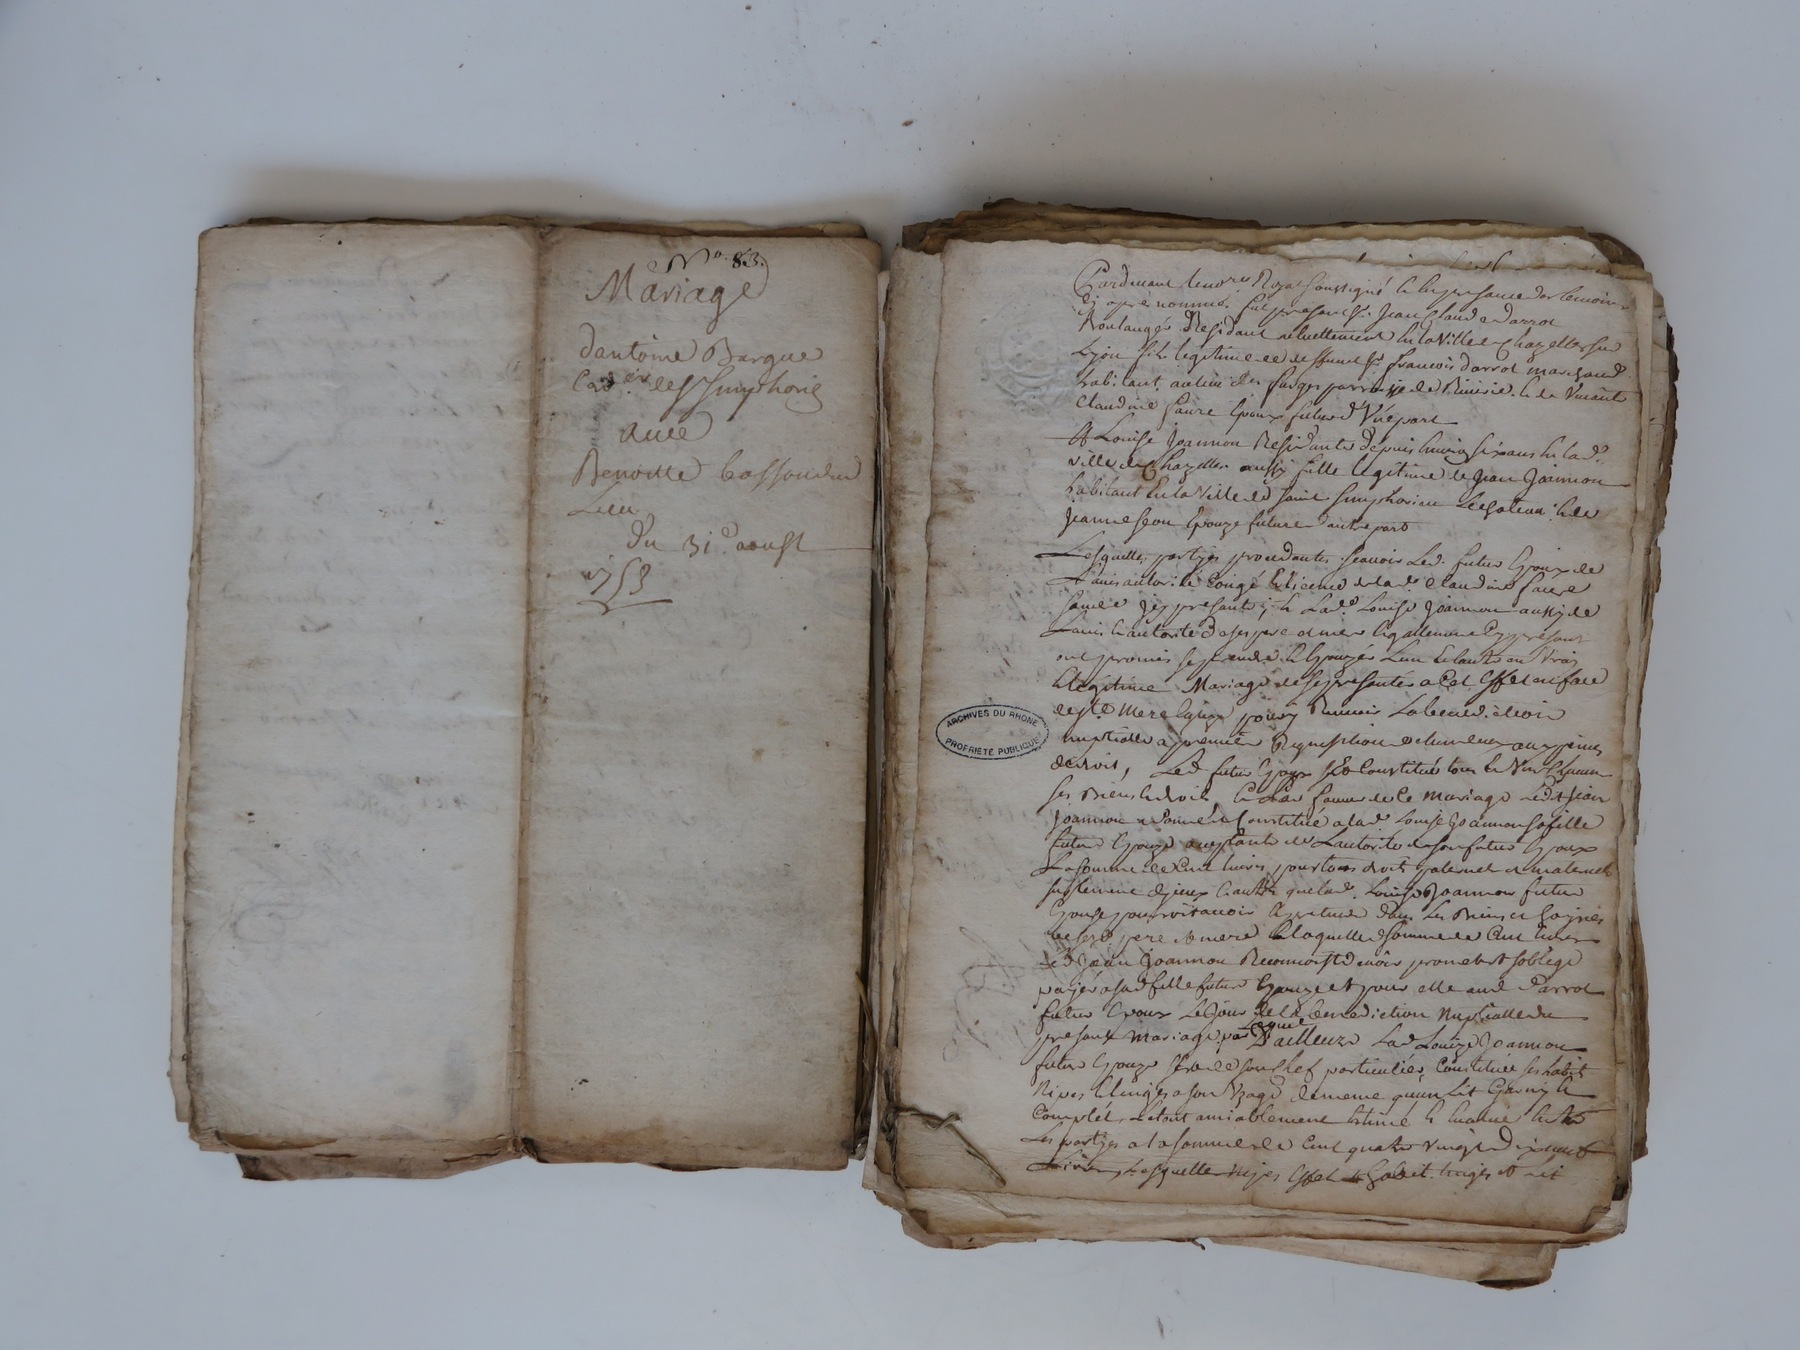 No 83.
Mariage
dantoine Bargue
Cad.er de St Simphorie
avec
Benoitte
Lieu
du 31e aoust
1753
Pardevant le no.re Royal soussigné et en presance des temoins
cy apres nommés fut presant Sr. Jean Claude Darrot
Boulanger Residant actuellement en la Ville de Chazelles sur
Lyon fils legitime de deffunt Sr. francois darrot marchand
habitant au lieu des farges parroisse de et de Vivante
Claudine faure Epoux futur d'Une part
Et Louise Joannon Residante depuis environ six ans en lad.e
ville de Chazelles aussy fille legitime de Jean Joannon
habitant En la Ville de Saint Simphorien Lechateau et de
Jeanne Epouze future d'autre part
Lesquelles partyes procedantes scavoir Led. futur Epoux de
L'avis autorité Congé et licence de lad.e Claudine faure
sa mere jcy presante, et Lad.e Louise Joannon aussy de
Lavis et autorité de ses pere et mere Egallement Cy presant
ont promis se prendre et Epouzer L'un Et lautre en Vray
et legitime Mariage et se presanter a Cet Effet en face
de Ste. Mere Eglise pour y Recevoir La benediction
nuptialle a premiere Requisition de l'un deux aux peines
de droit, Led. futur Epoux s'est Constitué tous et Un Chacun
ses Biens et droits, Et En faveur de Ce Mariage Led. Sr Jean
Joannon a donné et Constitué a lad.e Louise Joannon sa fille
future Epouze acceptante de L'autorité de son futur Epoux
La somme de Cent livres pour tous droits paternel et maternels
suplement diceux Et autres que lad.e Louise Joannon future
Epouze pourroit avoir Et pretendre dans Les Biens et hoiries
de sesd. pere et mere laquelle somme de Cent livres
Led. Jean Joannon Reconnoist devoir promet et soblige
payer a sad. fille future Epouze et pour elle aud. Darrot
futur Epoux Le Jour de la benediction Nuptialle du
presant Mariage, par lequel D'ailleurs Lad. Louize Joannon
future Epouze s'est de son chef particulier Constituée ses habits
Nipes et linges a son Uzage de meme qu'un Lit Garny et
Complet, Le tout amiablement Estimé et Evalué entre
Les partyes a la somme de Cent quatre vingt dixneuf
Livres, Lesquelles nipes Effets habits linges et lit
ARCHIVES DU RHONE
PROPRIÉTÉ PUBLIQUE